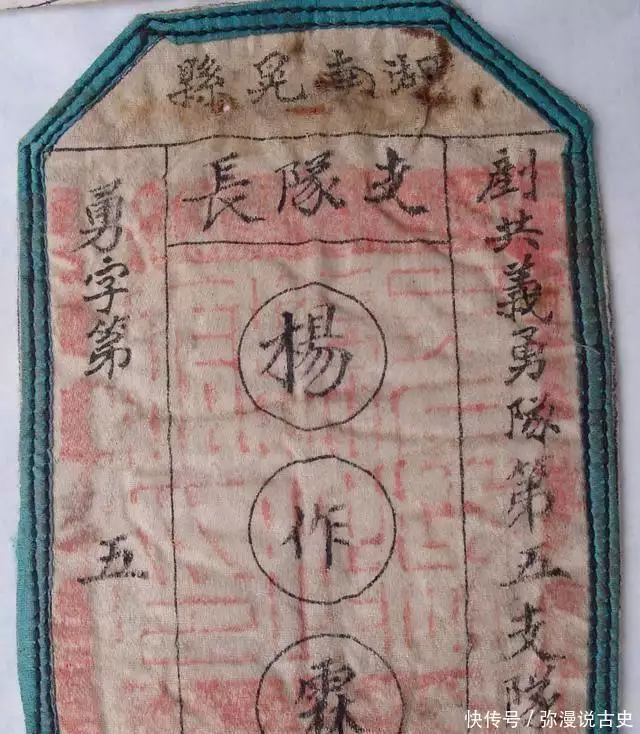 湖南晃縣
剷共義勇隊第五支隊
支隊長
楊
作
霖
勇字第 五
快传号/弥漫说古史